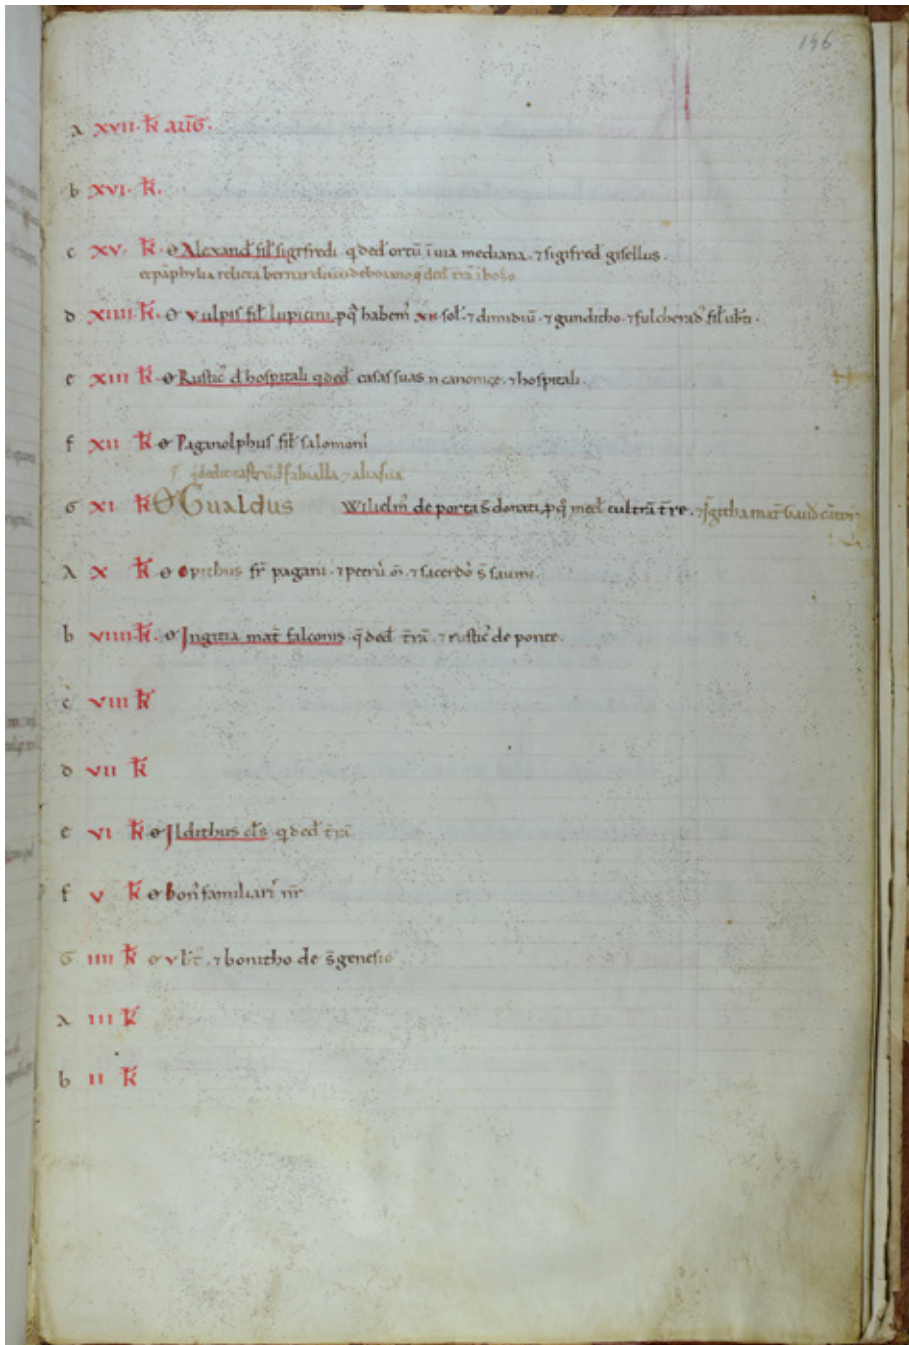 196
a xvii · k̅ aūg ·
b xvi · k̅ ·
c xv · k̅ · O Alexand' fil' sigefredi · q ded' ortū ī uia mediana · ⁊ sigifred' gisellus ·
et relicta ded' t̄rā ī
d xiiii · k̅ · O vulpis fil' lupicini p q' habem' xii sol' · ⁊ dimidiū · ⁊ gunditho · ⁊ fil' ub̄ti ·
e xiii k̅ O Rustic' d' hospitali q ded' casas suas n canonice · ⁊ hospitali ·
f xii k̅ O Paganolphus fil' salomoni
q dedit castrū d' fabialla ⁊ alia sua
G xi k̅ O Gualdus Wilielm' de porta s̄ donati, p q' med' cultrā t̄re · mat̄
a x k̅ O opithus fr̄ pagani · ⁊ petrus · ⁊ sacerdo' s̄
b viiii · k̅ · O Ingitia mat̄ falconis · q ded' t̄rā · ⁊ rustic' de ponte ·
c viii k̅
d vii k̅
e vi k̅ O Ildithus cl's q ded' t̄rā
f v k̅ O bon' familiari' nr̄
G iiii k̅ O · ⁊ bonitho de s̄ genesio
a iii k̅
b ii k̅